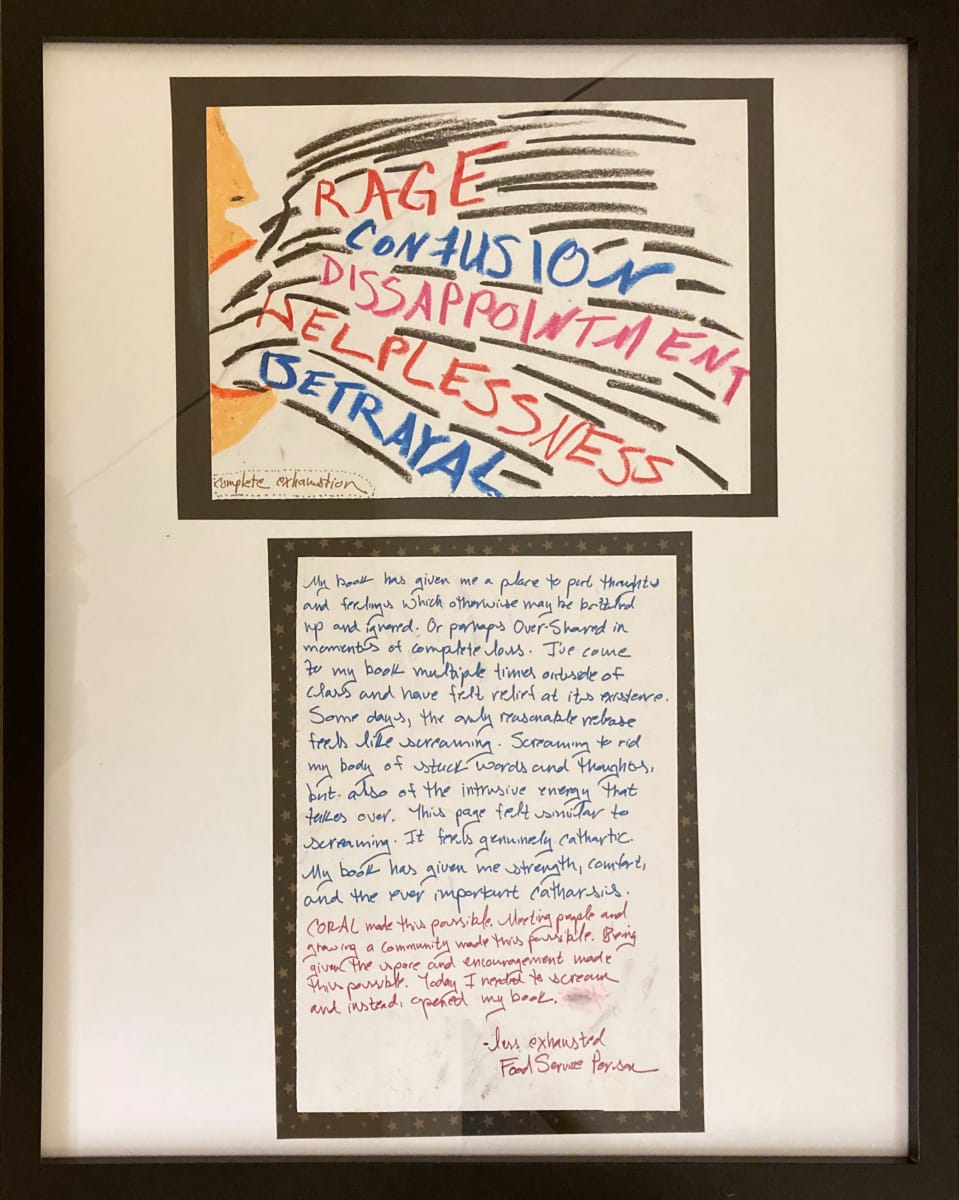 RAGE
CONFUSION
DISSAPPOINTMENT
HELPLESSNESS
BETRAYAL
complete exhaustion
My book has given me a place to put thoughts
and feelings which otherwise may be bottled
up and ignored. Or perhaps Over-Shared in
moments of complete loss. I've come
to my book multiple times outside of
class and have felt relief at its existence.
Some days, the only reasonable release
feels like screaming. Screaming to rid
my body of stuck words and thoughts,
but also of the intrusive energy that
takes over. This page felt similar to
screaming. It feels genuinely cathartic.
My book has given me strength, comfort,
and the ever important catharsis.
CORAL made this possible. Meeting people and
growing a community made this possible. Being
given the space and encouragement made
this possible. Today I needed to scream
and instead, opened my book.
-less exhausted
Food Service Person